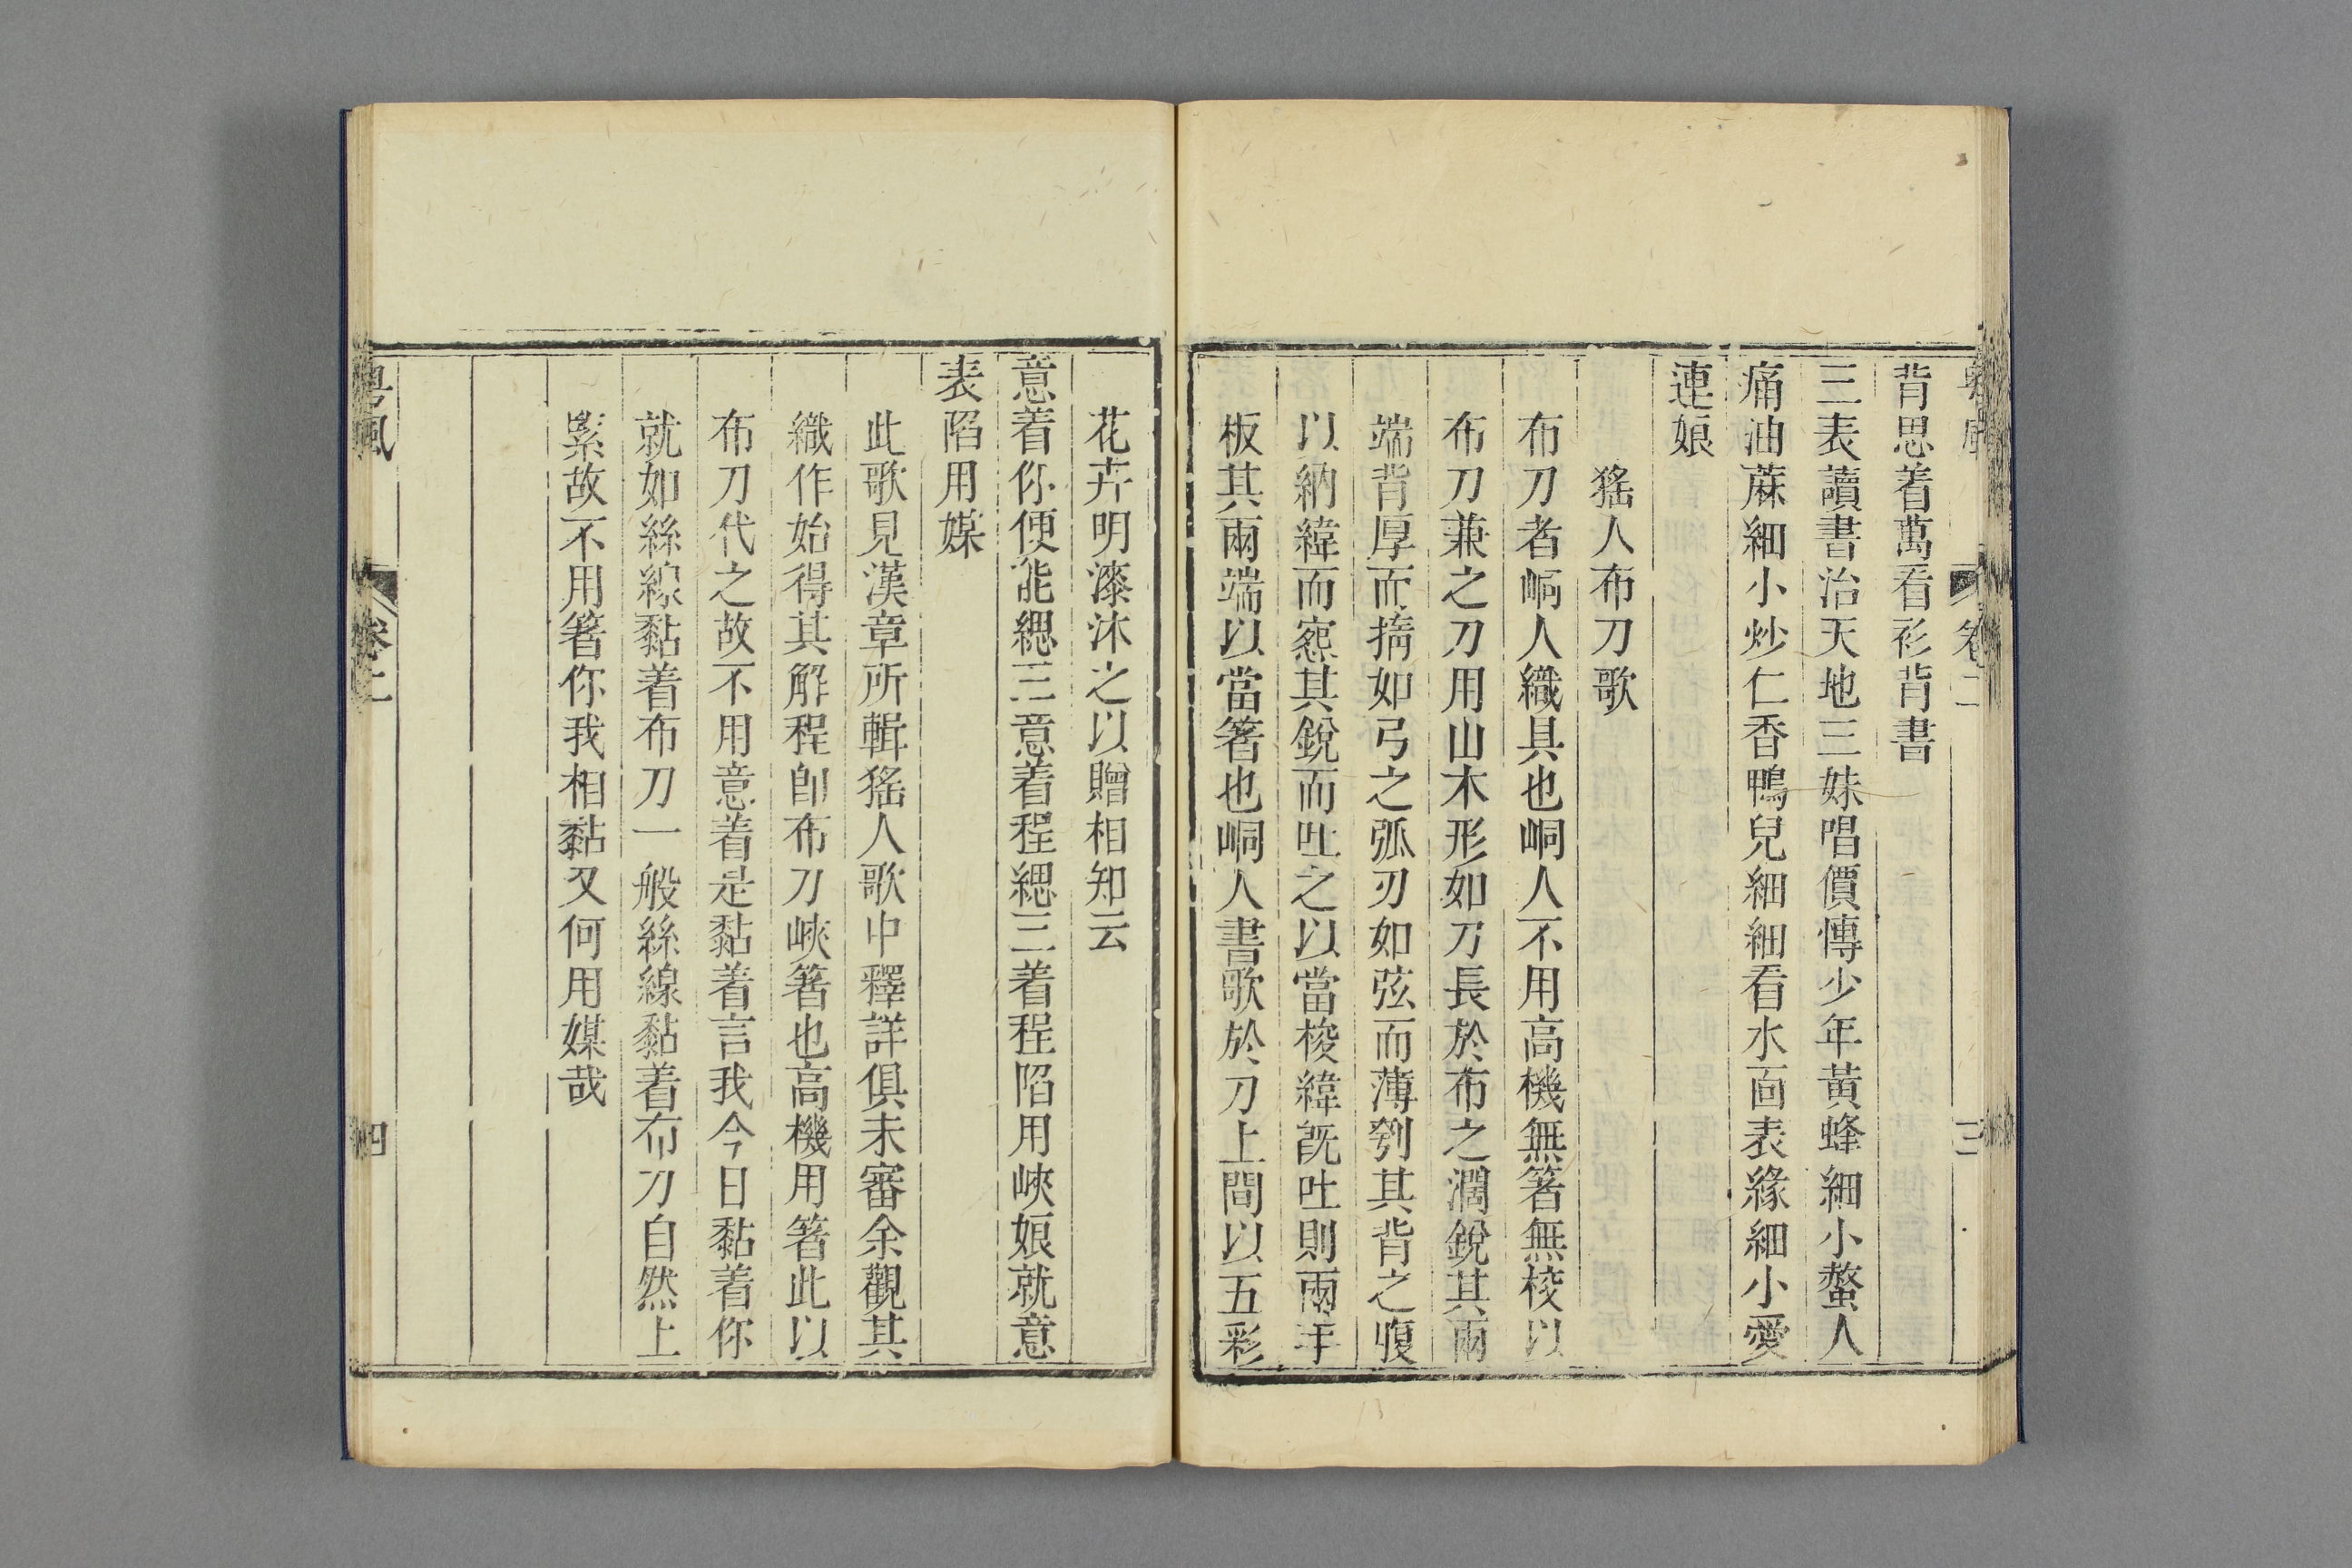 背思着萬看衫背書
三表讀書治天地三妹唱價傳少年黃蜂細小螫人
痛油蔴細小炒仁香鴨兒細細看水面表緣細小愛
連娘
猺人布刀歌
布刀者峒人織具也峒人不用高機無箸無梭以
布刀兼之刀用山木形如刀長於布之濶銳其兩
端背厚而橢如弓之弧刃如弦而薄刳其背之腹
以納緯而窓其銳而吐之以當梭緯旣吐則兩手
板其兩端以當箸也峒人書歌於刀上間以五彩
花卉明漆沐之以贈相知云
意着你便能緦三意着程緦三着程陷用峽娘就意
表陷用媒
此歌見漢章所輯猺人歌中釋詳俱未審余觀其
織作始得其解程卽布刀峽箸也高機用箸此以
布刀代之故不用意着是黏着言我今日黏着你
就如絲線黏着布刀一般絲線黏着布刀自然上
緊故不用箸你我相黏又何用媒哉
粵風
卷二
四